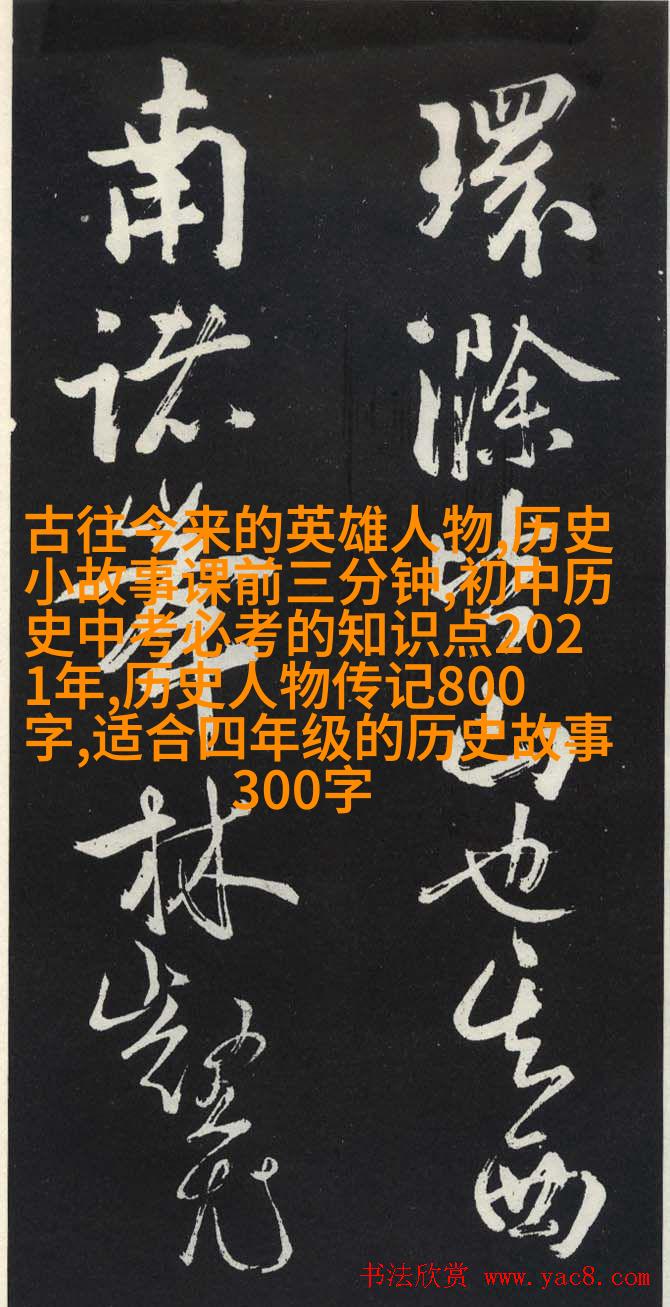 環滁皆山也其西
南諸峯林壑尤
古往今来的英雄人物,历史
小故事课前三分钟,初中历
史中考必考的知识点202
1年,历史人物传记800
字,适合四年级的历史故事
300字
书法欣赏 www.yac8.com